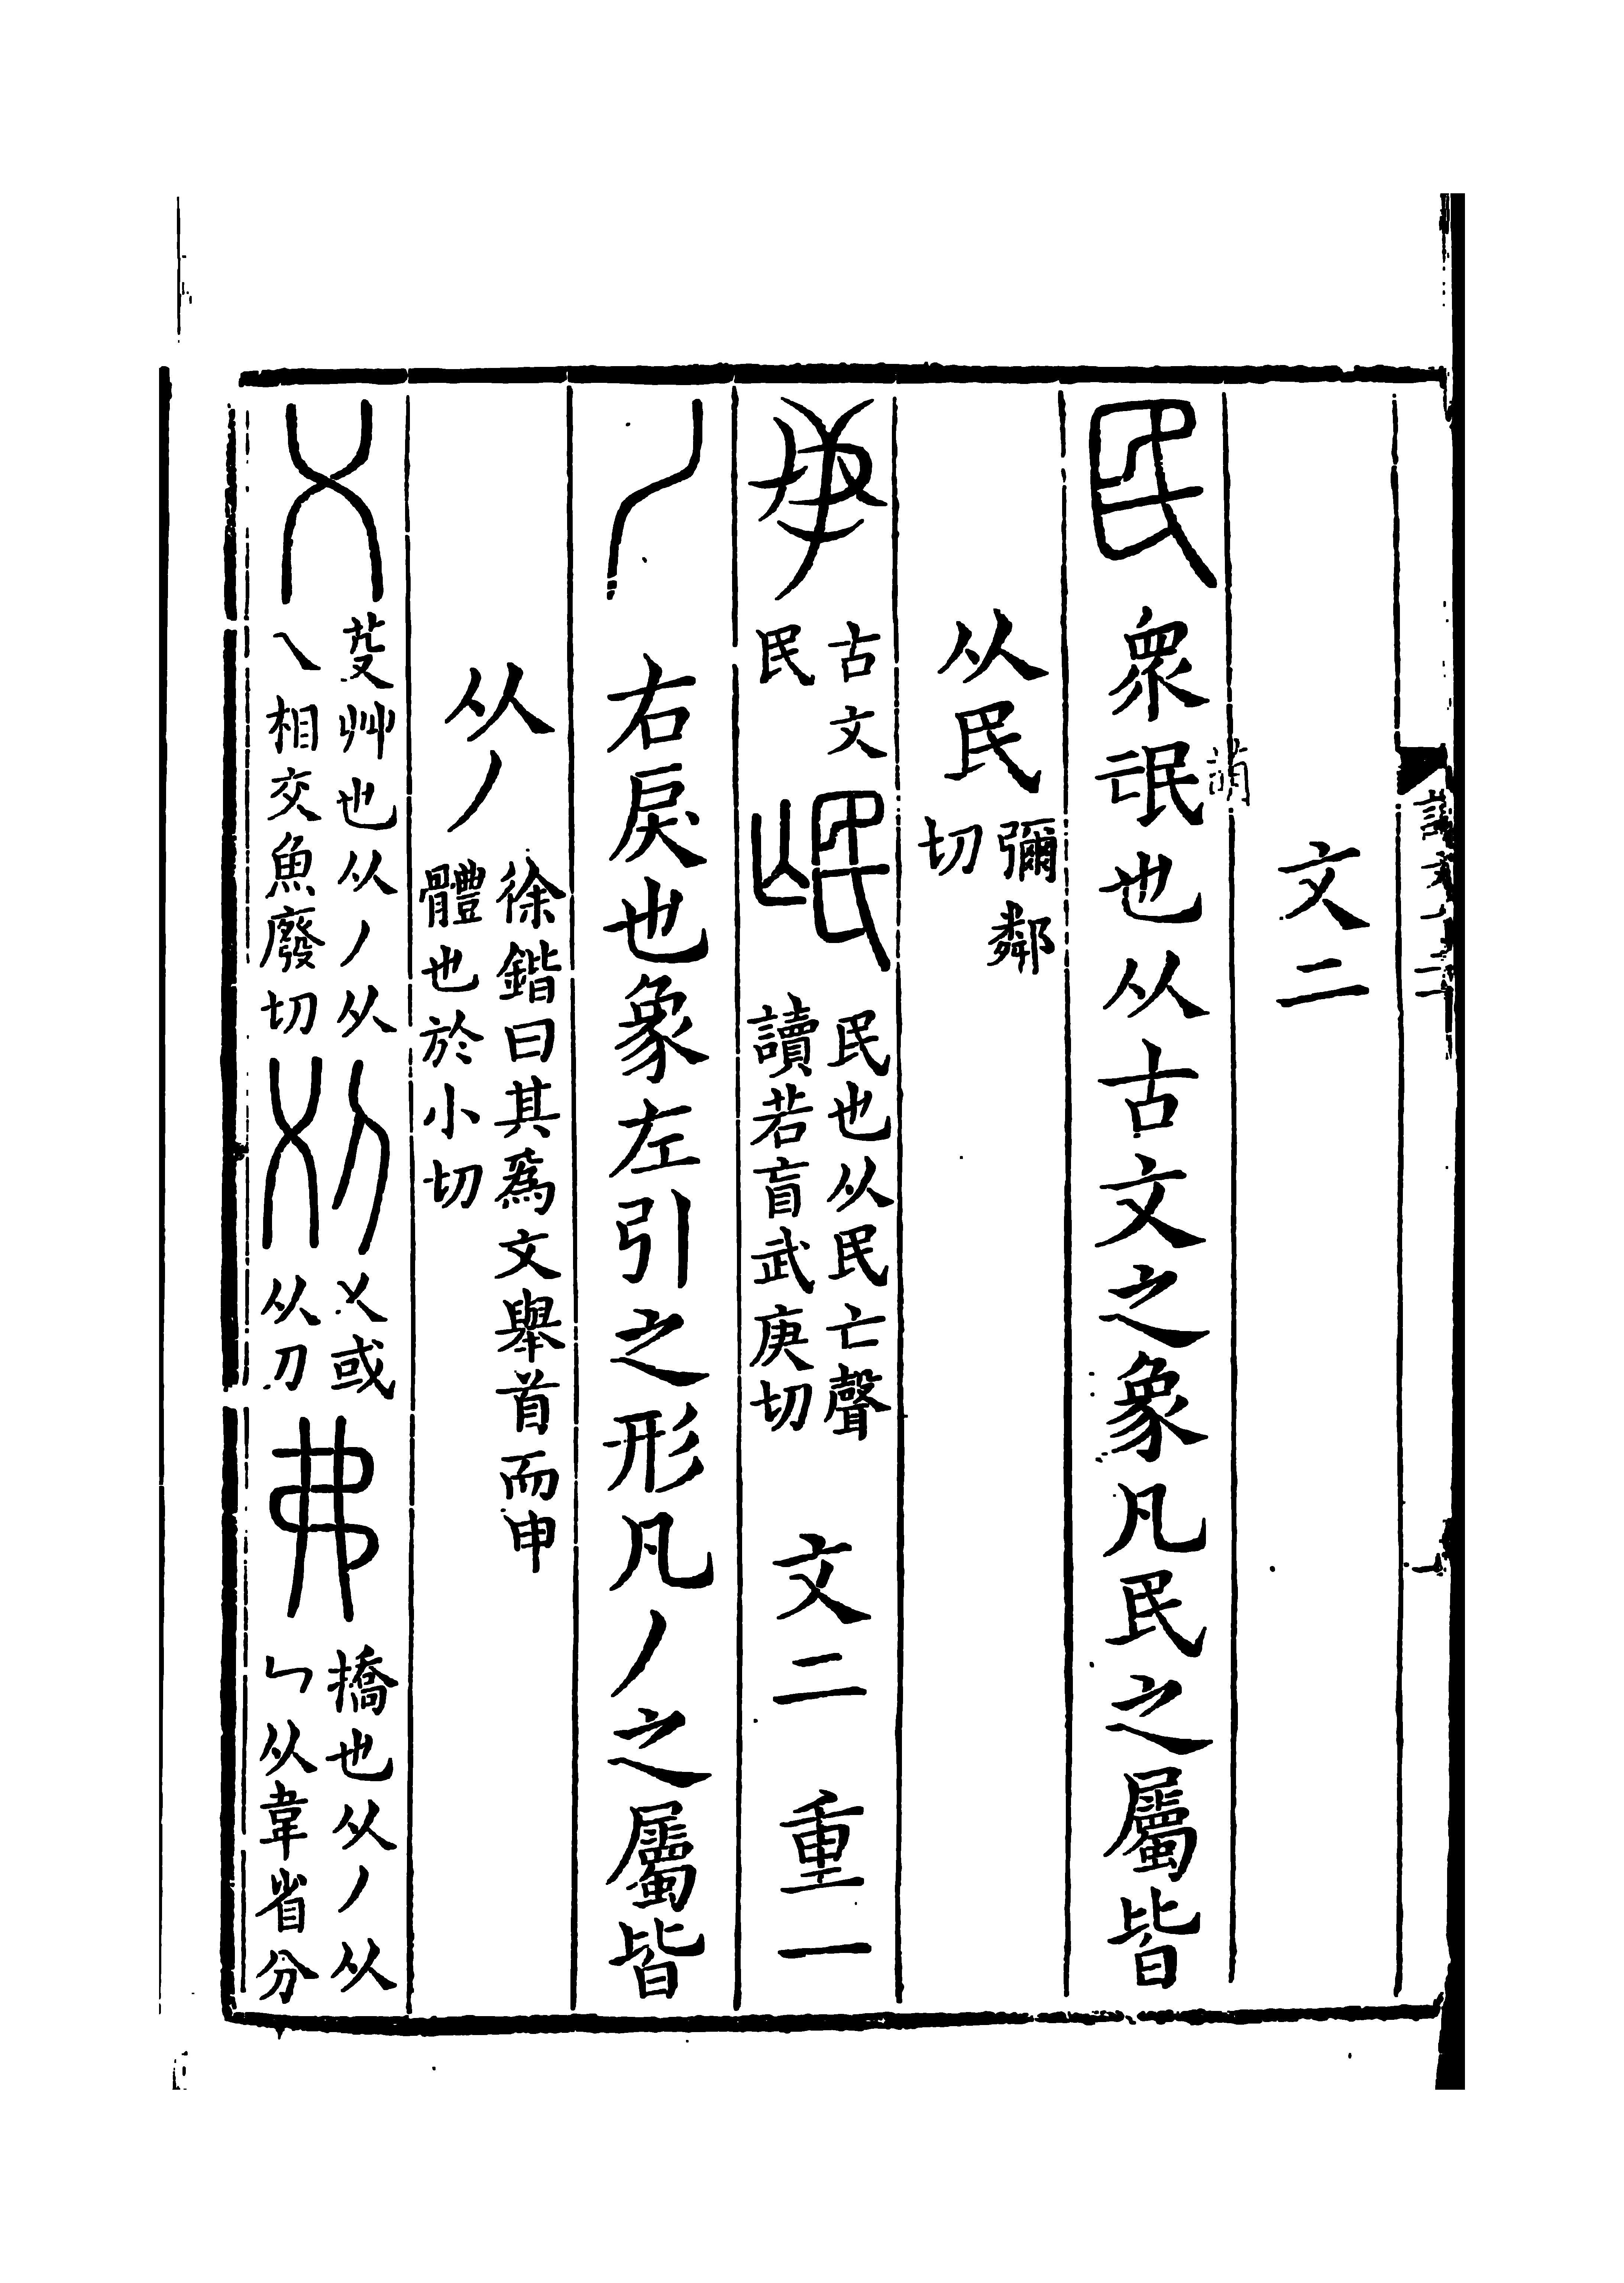 文二
民 衆氓也从古文之象凡民之屬皆
萌
从民彌鄰切
𢁕 古文民 氓 民也从民亡聲讀若盲武庚切 文二 重一
丿 右戾也象左引之形凡丿之屬皆
从丿徐鍇曰其爲文舉首而申體也於小切
乂 芟艸也从丿从乀相交魚廢切 刈 乂或从刀 弗 撟也从丿从乀从韋省分